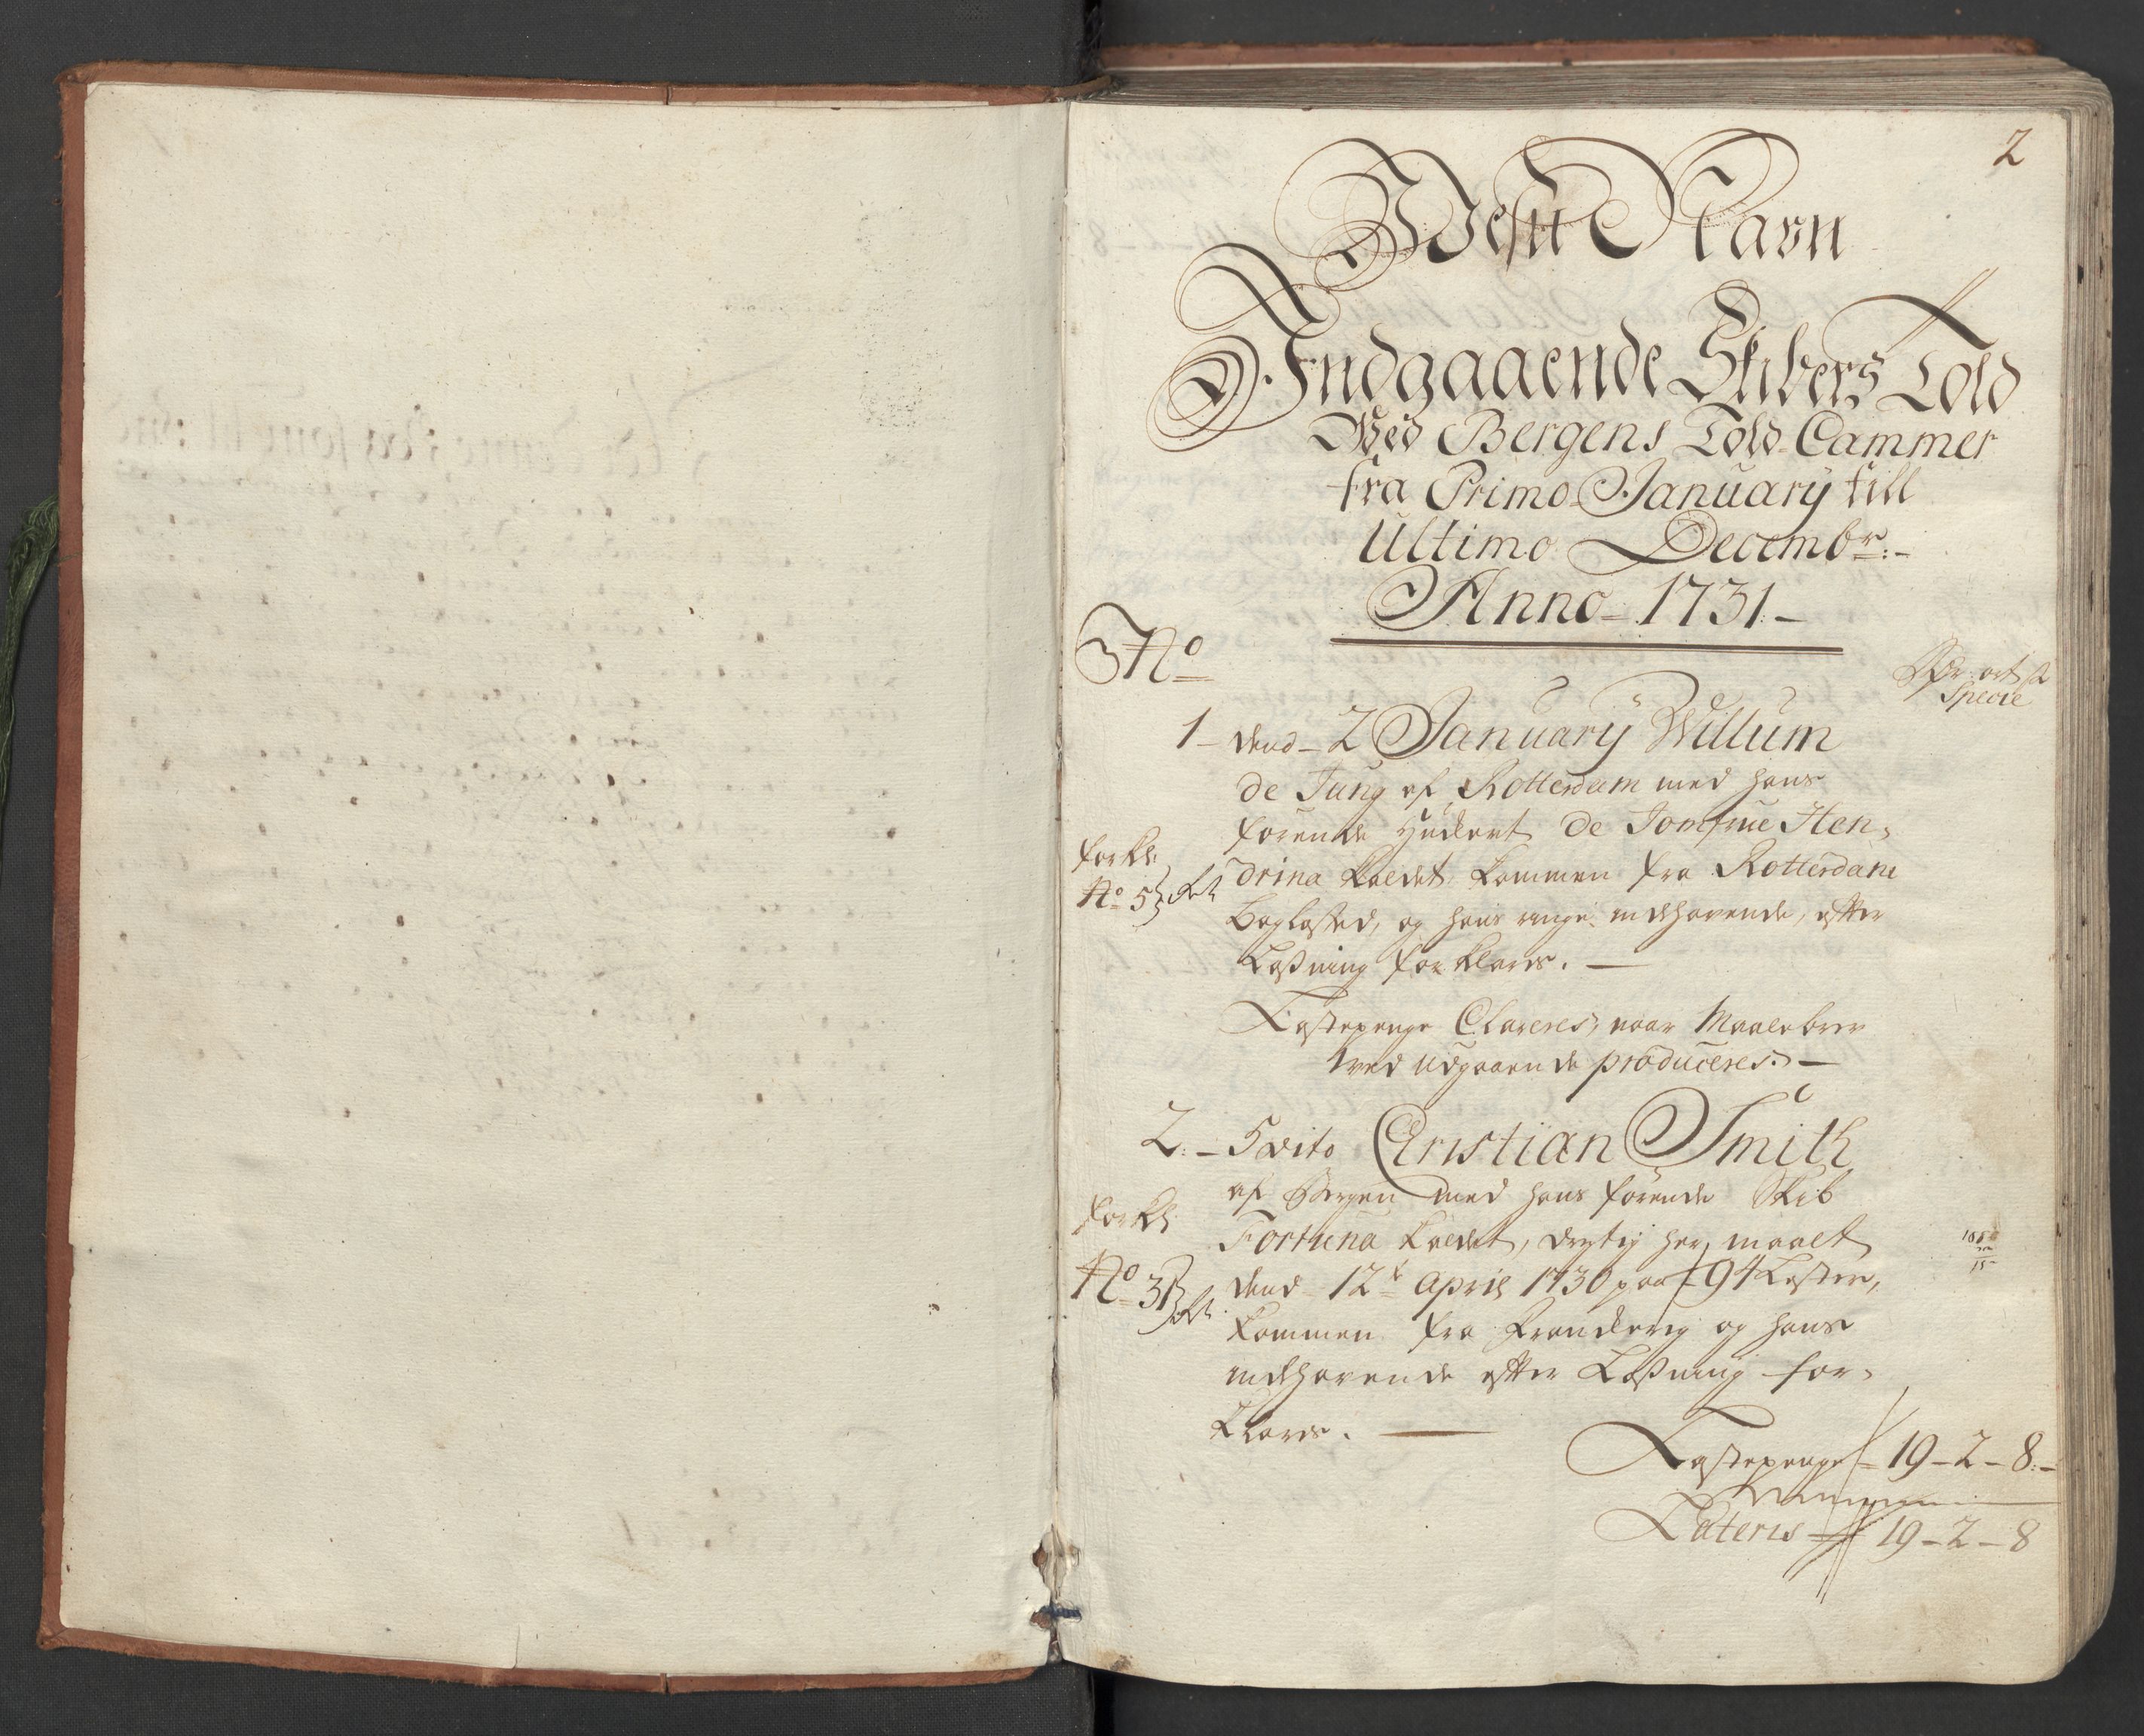 2
I JEsu Navn
Indgaaende Skibers Told
Wed Bergens Told Cammer
fra Primo January till
Ultimo Decembr:
Anno 1731
No
Rdr ort ß
Specie
1 dend 2 January Willum
de Jung af Rotterdam med hans
førende Huckert De Jomfrue Hen,
forkl:
drina kaldet kommen fra Rotterdam
No 5
Baglasted, og hans ringe indehavende, efter
Loßning forklares.
Lastepenge Clareres, naar Maalebrev
wed udgaaende produceres.
2. 5 dito Christian Smith
af Bergen med hans førende Skib
forkl:
Fortuna kaldet, drægtig her maalt
No 31
dend 12te April 1730 paa 94 Lester,
kommen fra og hans
indehavende efter Loßning for,
klares.
Lastepenge 19-2-8.
Lateris 19-2-8